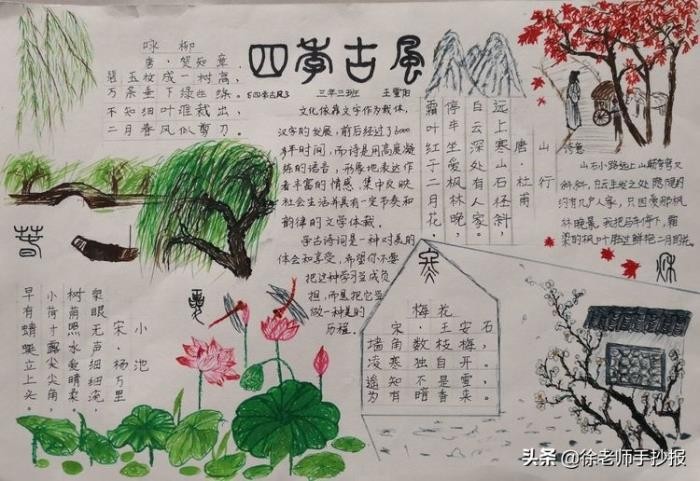 四季古風
《四季古风》 三年三班
咏柳
唐·贺知章
碧玉妆成一树高,
万条垂下绿丝绦。
不知细叶谁裁出,
二月春风似剪刀。
文化依靠文字作为载体,
汉字的发展,前后经过了6000
多年时间,而诗是用高度凝
练的语言,形象地表达作
者丰富的情感,集中反映
社会生活并具有一定节奏和
韵律的文学体裁。
学古诗词是一种对美的
体会和享受,希望你不要
把这种学习当成负
担,而是把它当
做一种美的
历程。
山行
唐·杜甫
远上寒山石径斜,
白云深处有人家。
停车坐爱枫林晚,
霜叶红于二月花。
诗意
山石小路远上山巅弯弯又
斜斜,白云生发之处隐隐
约有几户人家,只因爱那枫
林晚景,我把马车停下,霜
染的枫叶胜过鲜艳二月的花。
春
夏
秋
冬
小池
宋·杨万里
泉眼无声细细流,
树荫照水爱晴柔。
小荷才露尖尖角,
早有蜻蜓立上头。
梅花
宋·王安石
墙角数枝梅,
凌寒独自开。
遥知不是雪,
为有暗香来。
头条 @徐老师手抄报